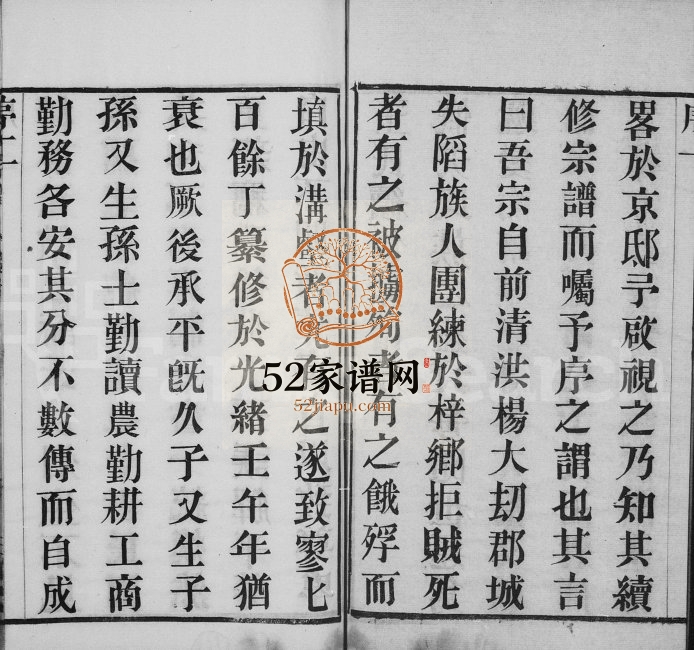 畧於京邸予啟視之乃知其續
修宗譜而囑予序之謂也其言
曰吾宗自前清洪楊大刼郡城
失陷族人團練於梓鄉拒賊死
者有之被擄者有之餓殍而
填於溝壑者有之遂致寥匕
百餘丁纂修於光緒壬午年猶
衰也厥後承平旣久子又生子
孫又生孫士勤讀農勤耕工商
勤務各安其分不數傳而自成
52家谱网
52jiapu.com